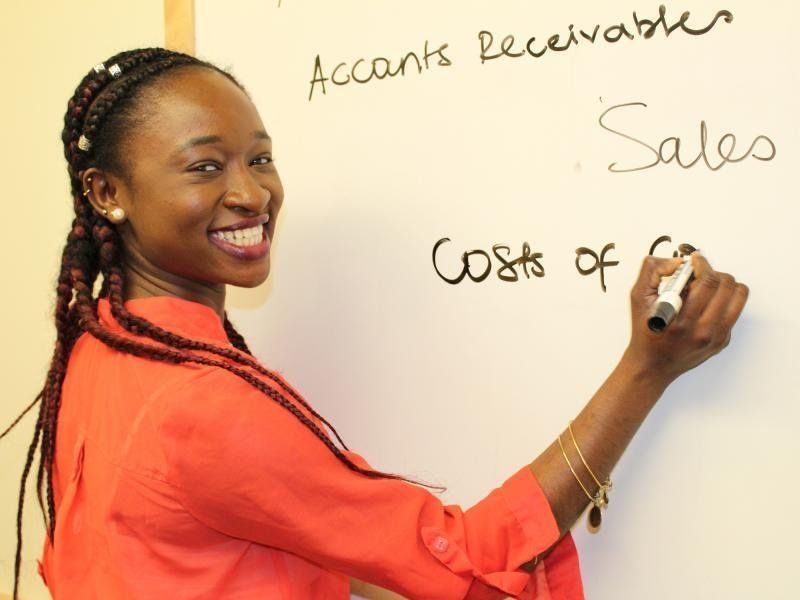 Accants Receivables
Sales
Costs of